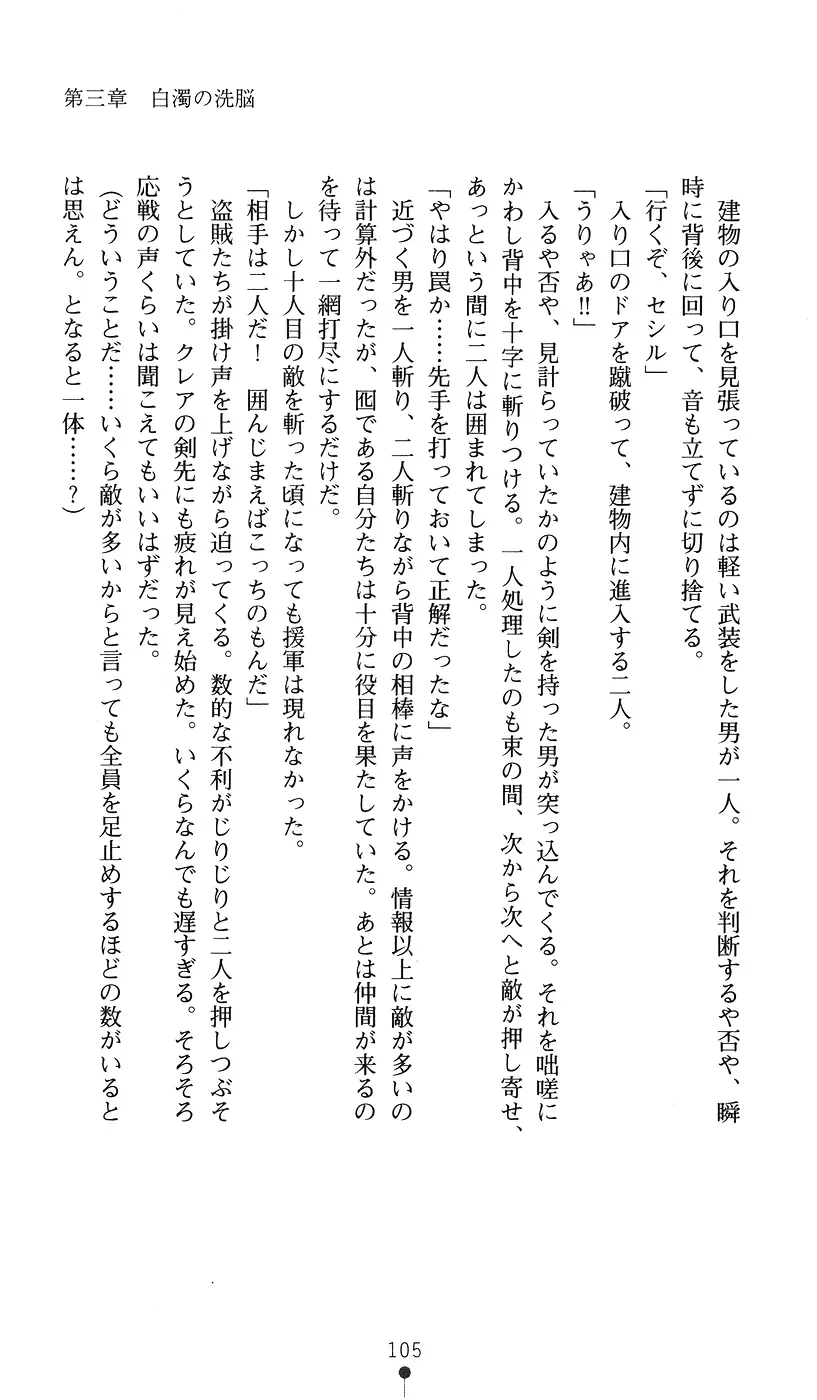 第三章　白濁の洗脳
　建物の入り口を見張っているのは軽い武装をした男が一人。それを判断するや否や、瞬
時に背後に回って、音も立てずに切り捨てる。
「行くぞ、セシル」
　入り口のドアを蹴破って、建物内に進入する二人。
「うりゃあ!!」
　入るや否や、見計らっていたかのように剣を持った男が突っ込んでくる。それを咄嗟に
かわし背中を十字に斬りつける。一人処理したのも束の間、次から次へと敵が押し寄せ、
あっという間に二人は囲まれてしまった。
「やはり罠か……先手を打っておいて正解だったな」
　近づく男を一人斬り、二人斬りながら背中の相棒に声をかける。情報以上に敵が多いの
は計算外だったが、囮である自分たちは十分に役目を果たしていた。あとは仲間が来るの
を待って一網打尽にするだけだ。
　しかし十人目の敵を斬った頃になっても援軍は現れなかった。
「相手は二人だ！　囲んじまえばこっちのもんだ」
　盗賊たちが掛け声を上げながら迫ってくる。数的な不利がじりじりと二人を押しつぶそ
うとしていた。クレアの剣先にも疲れが見え始めた。いくらなんでも遅すぎる。そろそろ
応戦の声くらいは聞こえてもいいはずだった。
（どういうことだ……いくら敵が多いからと言っても全員を足止めするほどの数がいると
は思えん。となると一体……？）
105